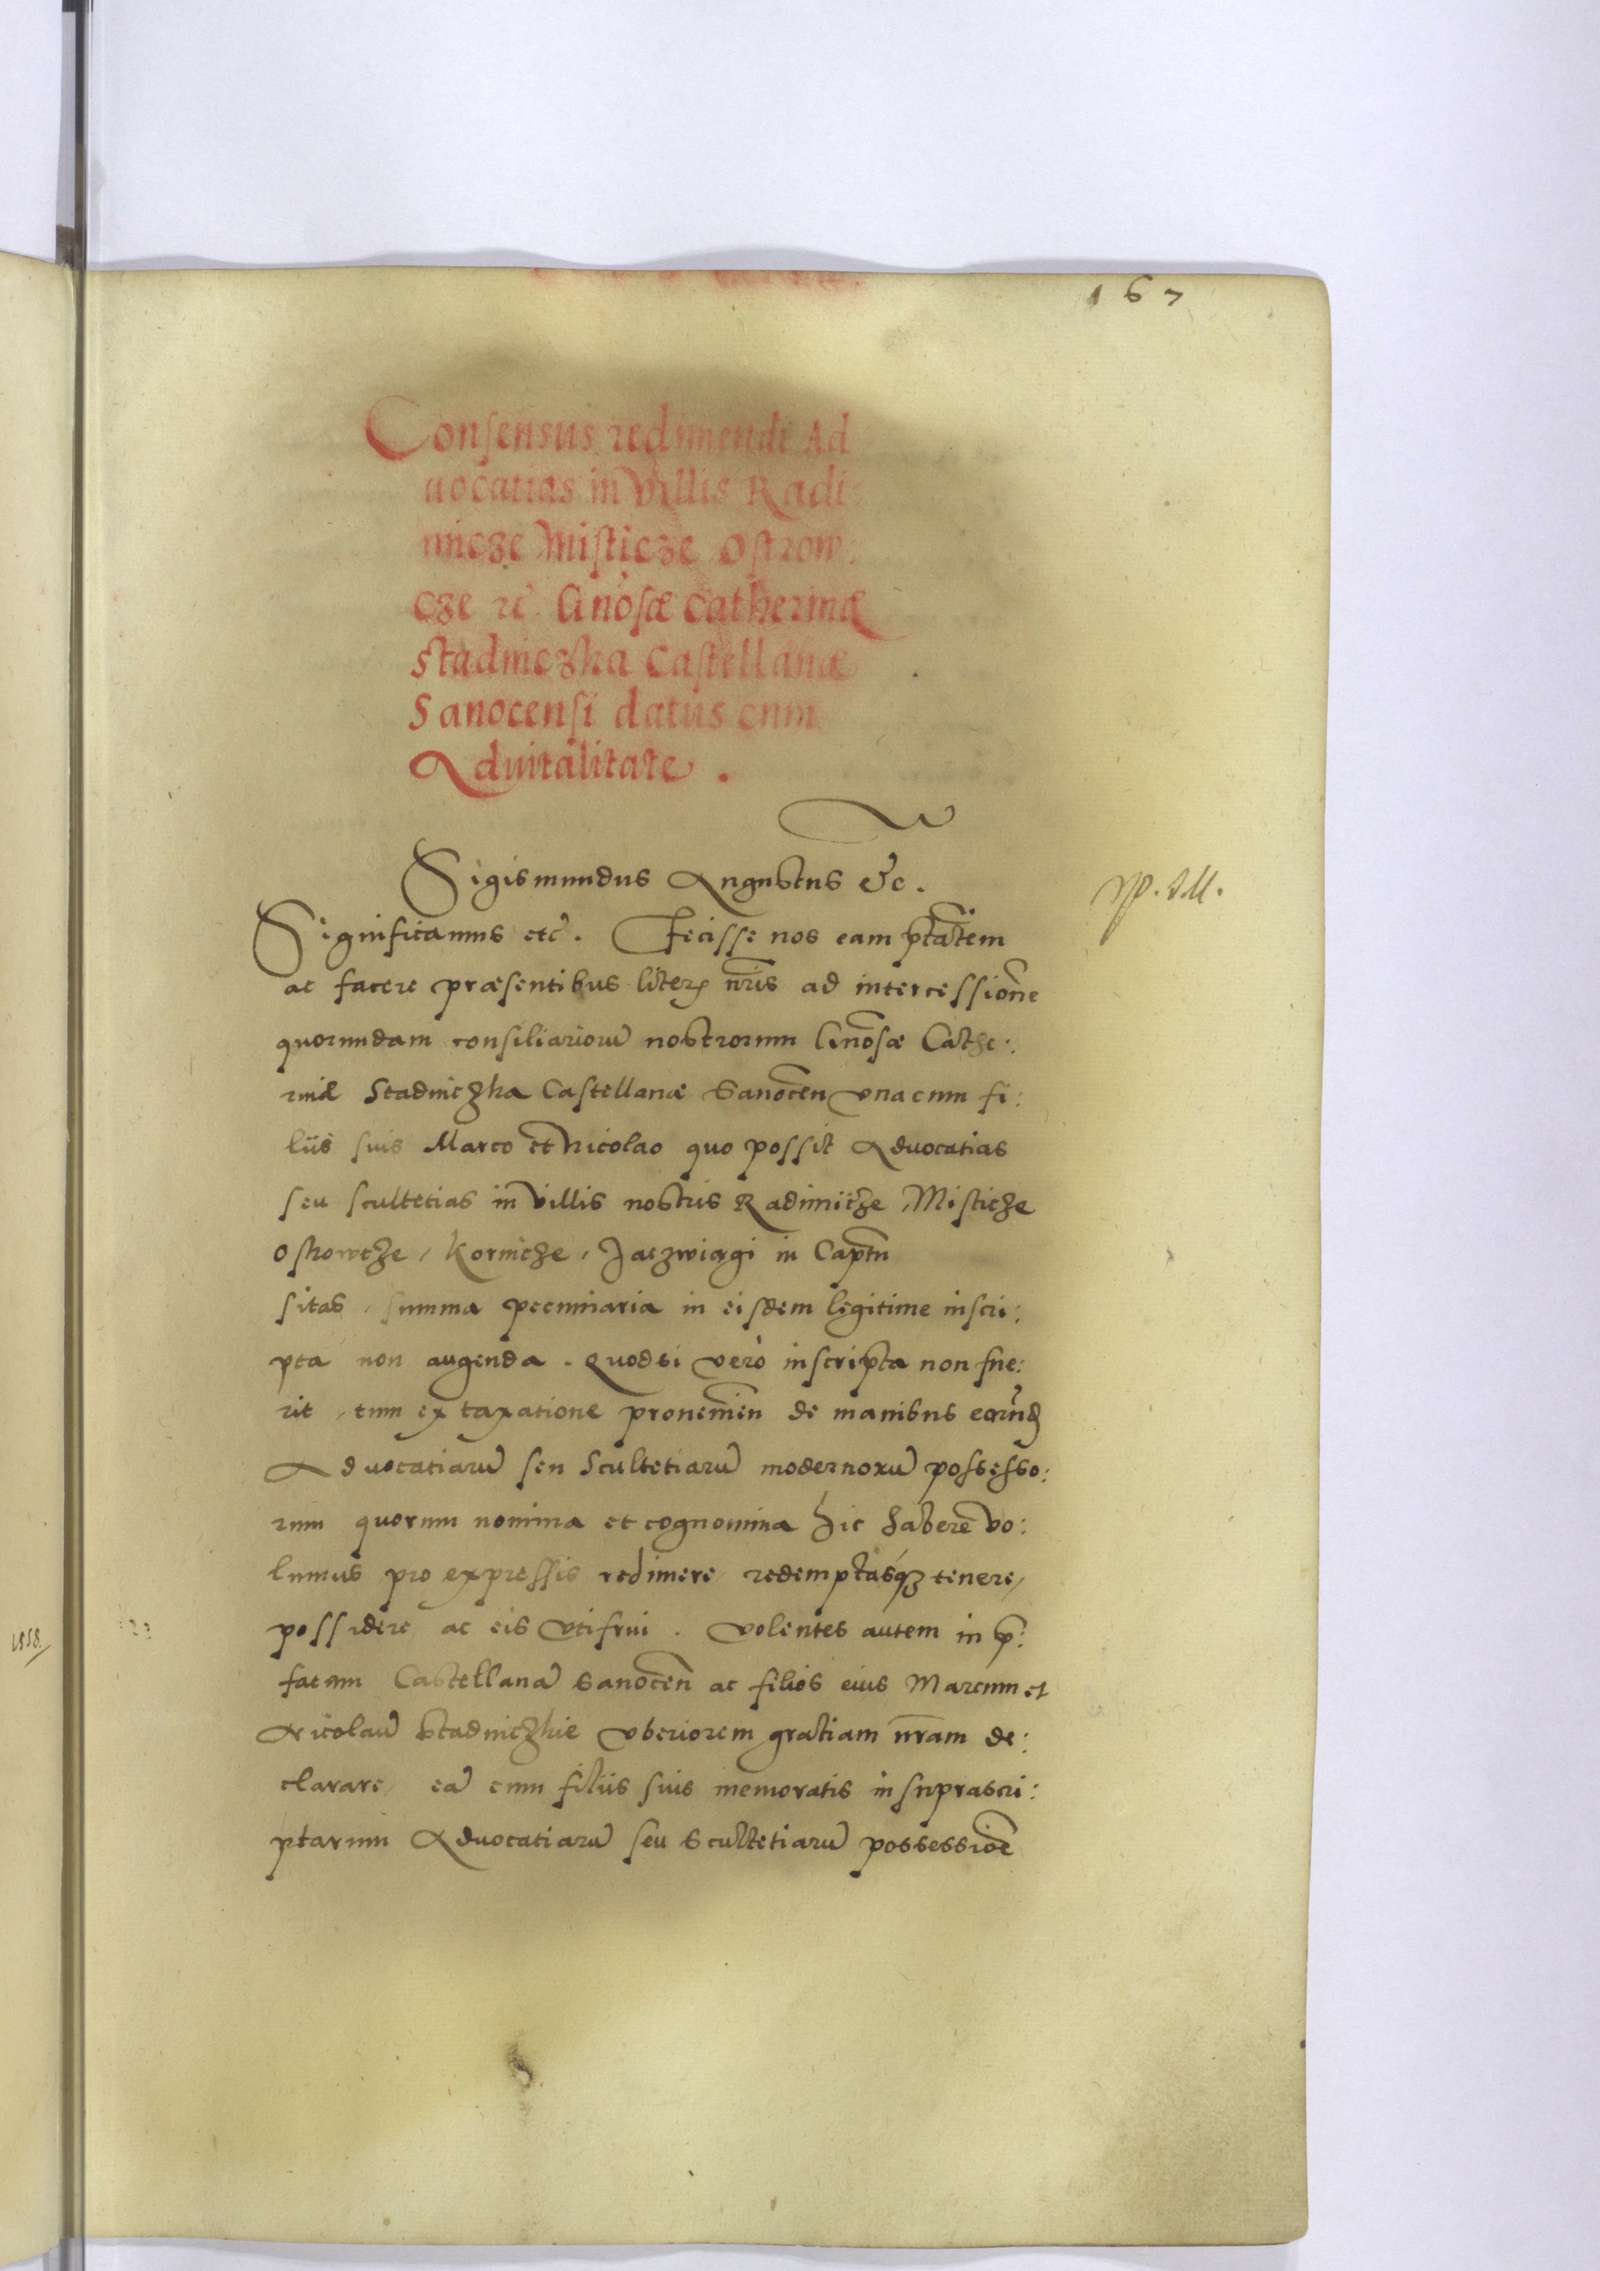 167
Consensus redimendi Ad
uocatias in Villis Radi:
micze Misticze Ostrow:
cze etc Gnosæ Catherinæ
Stadniczka Castellanæ
Sanocensi datus cum
Aduitalitate.
Sigismundus Augustus &c.
Significamus etc. Fecisse nos eam ptatem
ac facere præsentibus literis nris ad intercessione
quorundam consiliarioru nostrorum Gnosæ Cathe:
rinæ Stadniczka Castellanæ Sanocen vnacum fi:
liis suis Marco et Nicolao quo possit Aduocatias
seu scultetias in Villis nostris Radimicze, Misticze
Ostrowcze, Kornicze, Jaczwiagi in Captu
sitas, summa pecuniaria in eisdem legitime inscri:
pta non augenda. Quodsi verò inscripta non fue:
rit, tum ex taxatione de manibus earund
Aduocatiaru seu Scultetiaru modernoru possesso:
rum quorum nomina et cognomina hic habere vo:
lumus pro expressis redimere redemptasq tenere,
possidere ac eis vtifrui. Volentes autem in p:
fatam Castellana Sanocen ac filios eius Marcum et
Nicolau Stadniczkie vberiorem gratiam nram de:
clarare, ea cum filiis suis memoratis in suprascri:
ptarum Aduocatiaru seu Scultetiaru possessioe
1558.